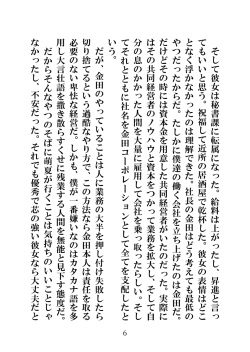 そして彼女は秘書課に転属になった。給料は上がったし、昇進と言っ
てもいいと思う。祝福して近所の居酒屋で乾杯した。彼女の表情はど
となく浮かなかったのは理解できた。社長の金田はどう考えても最低の
やつだったからだ。たしかに僕達の働く会社を立ち上げたのは金田だ。
だけどその時には資本金を用意した共同経営者がいたのだった。実際に
はその共同経営者のノウハウと資本をつかって業務を拡大し、そして自
分の息のかかった人間を大量に雇用して会社を乗っ取ったらしい。そし
てそれとともに社名を金田コーポレーションとして全てを支配したと
いう。
だが、金田のやっていることは人に業務の大半を押し付け失敗したら
切り捨てるという過酷なやり方で、この方法なら金田本人は責任を取る
必要のない卑怯な経営だ。しかも、僕が一番嫌いなのはカタカナ語を多
用し大言壮語を撒き散らすくせに残業する人間を無能と見下す態度だ。
だからそんなやつのそばに萌夏が行くことは気持ちのいいことじゃ
なかったし、不安だった。それでも優秀で芯の強い彼女なら大丈夫だと
6